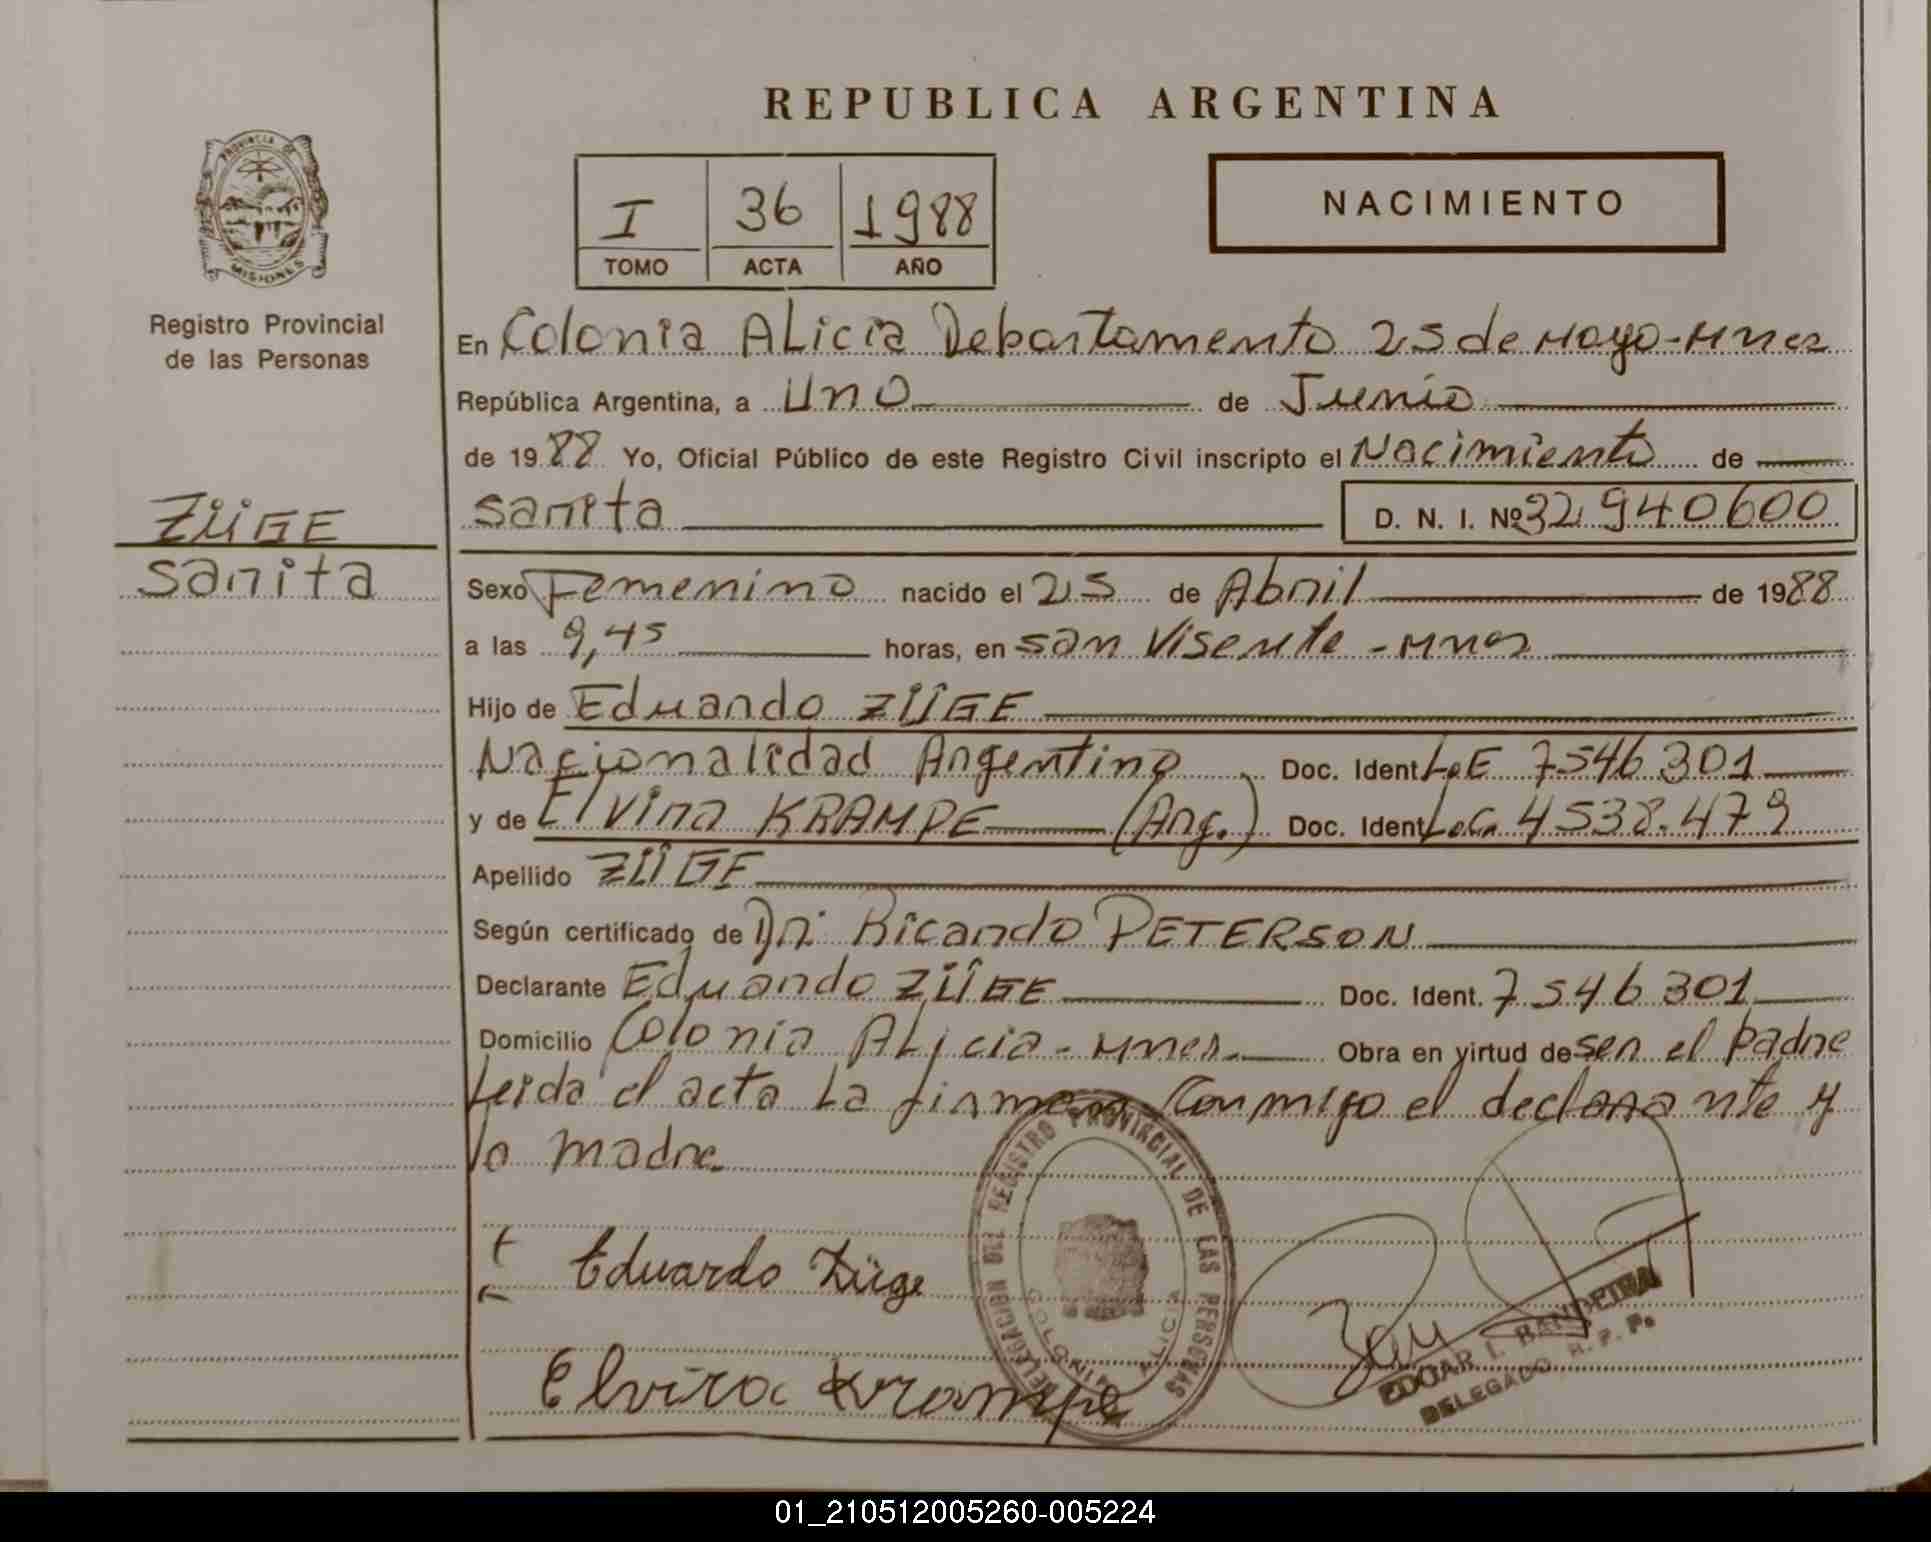 REPUBLICA ARGENTINA
PROVINCIA DE
MISIONES
Registro Provincial
de las Personas
I 36 1988
TOMO ACTA AÑO
NACIMIENTO
En Colonia ALicia Debartamento 25 de Mayo-Mnes
República Argentina, a Uno de Junio
de 1988 Yo, Oficial Público de este Registro Civil inscripto el Nacimiento de
Sarita D. N. I. Nº 32 940600
ZÜGE
Sarita
Sexo Femenino nacido el 25 de Abril de 1988
a las 9,45 horas, en San Visente - Mnes
Hijo de Eduardo ZÜGE
Nacionalidad Argentino Doc. Ident L.E 7546301
y de Elvira KRAMPE (Arg.) Doc. Ident L.C. 4538.479
Apellido ZÜGE
Según certificado de Dr. Ricardo PETERSON
Declarante Eduardo ZÜGE Doc. Ident. 7546301
Domicilio Colonia ALicia - Mnes. Obra en virtud de ser el padre
Leida el acta La firman Conmigo el declarante y
la madre
Eduardo Züge
Elvira Krampe
DELEGACION DEL REGISTRO PROVINCIAL DE LAS PERSONAS
COLONIA ALICIA
EDGAR I. BANDEIRA
DELEGADO R. P. P.
01_210512005260-005224